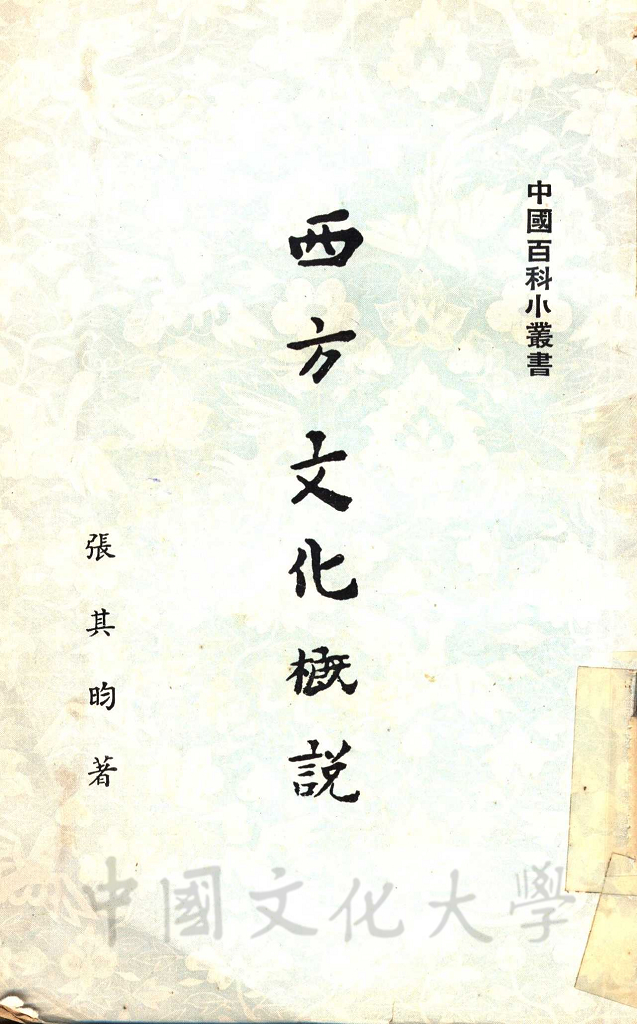 中國百科小叢書
西方文化概說
張其昀著
中國文化大學